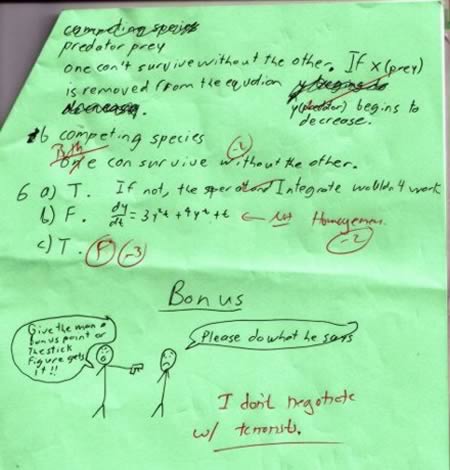 competing species
predator prey
one can't survive without the other. If x (prey)
is removed from the equation y begins to
decrease. y (predator) begins to
decrease.
b competing species
Both
One can survive without the other.
-2
6 a) T. If not, the operation Integrate wouldn't work
b) F. dy/dt = 3y²t + 4y² + t ← Not Homogenous.
-2
c) T. F -3
Bonus
Give the man a
bonus point or
the stick
figure gets
it!!
Please do what he says
I don't negotiate
w/ terrorists.